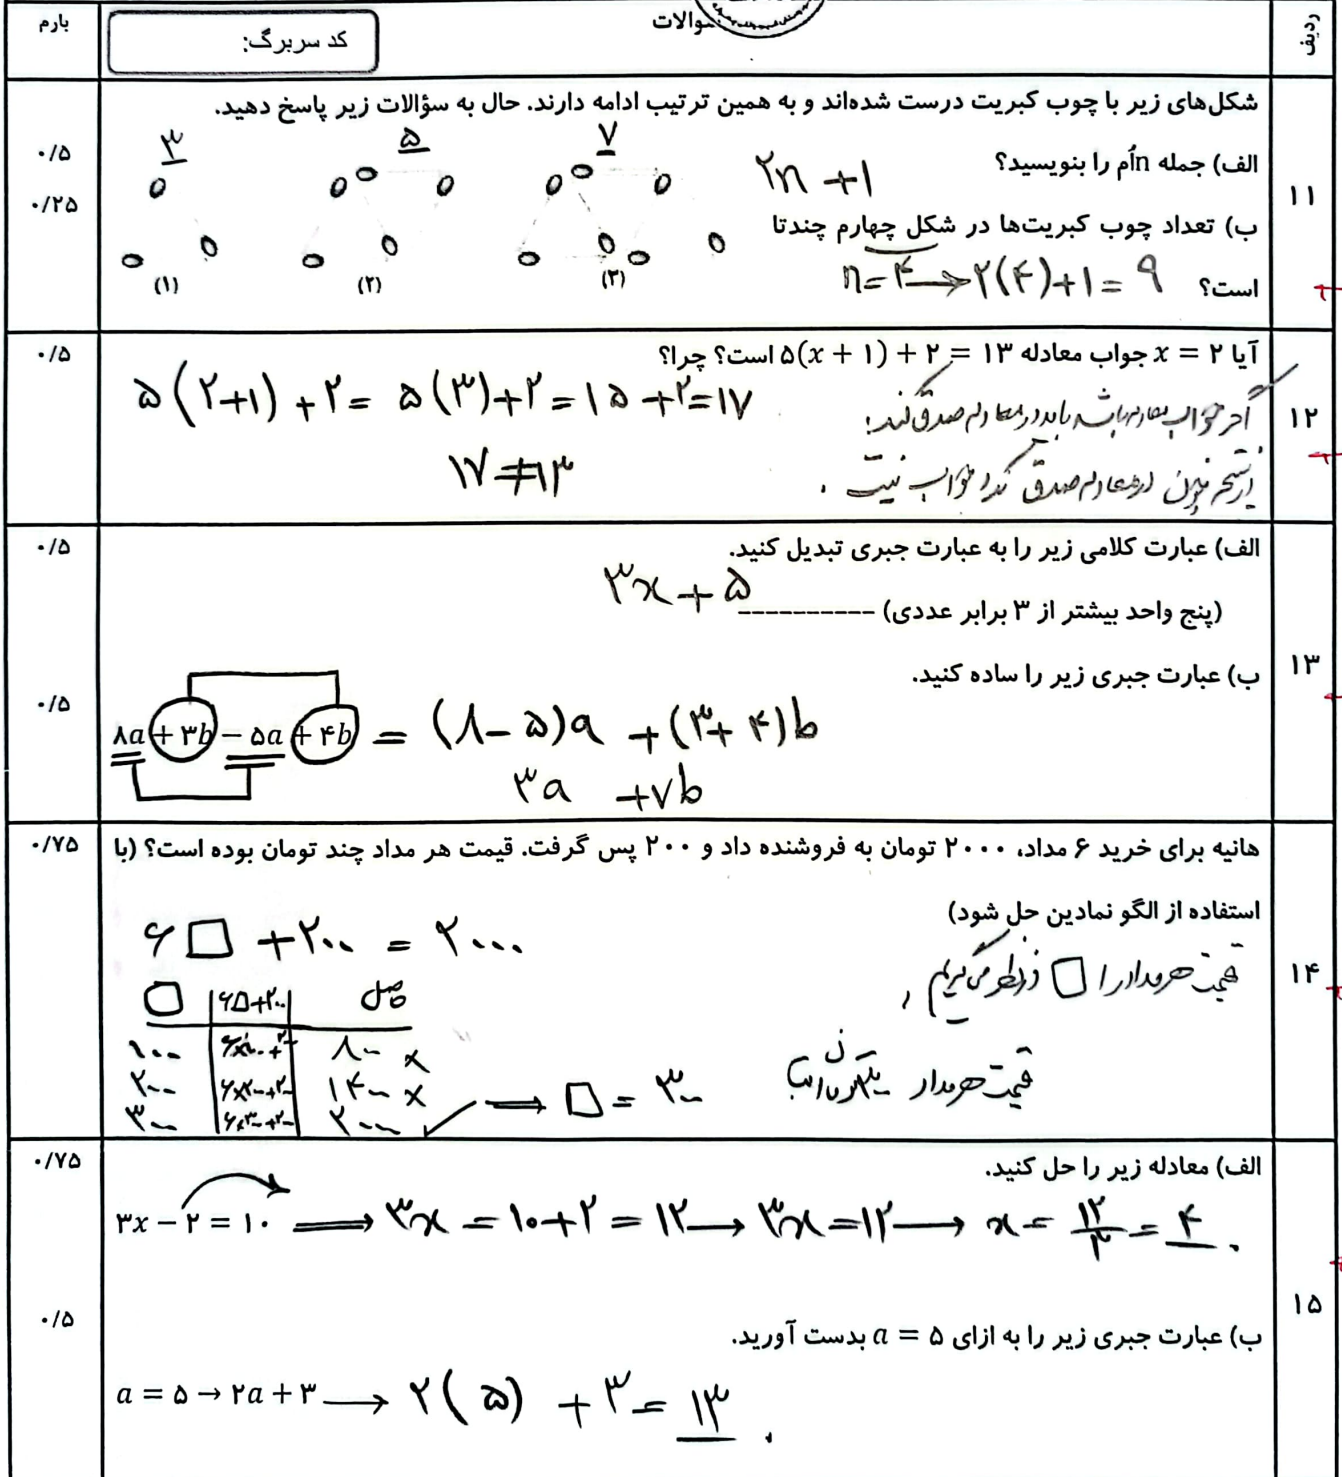 ردیف
سوالات
کد سربرگ:
بارم
۱۱
شکل‌های زیر با چوب کبریت درست شده‌اند و به همین ترتیب ادامه دارند. حال به سؤالات زیر پاسخ دهید.
۰/۵
۳ ۵ ۷
الف) جمله nاُم را بنویسید؟ ۲n + ۱
۰/۲۵
ب) تعداد چوب کبریت‌ها در شکل چهارم چندتا
است؟ n = ۴ → ۲(۴) + ۱ = ۹
(۱) (۲) (۳)
۱۲
آیا x = ۲ جواب معادله ۵(x + ۱) + ۲ = ۱۳ است؟ چرا؟
۰/۵
۵(۲+۱) + ۲ = ۵(۳) + ۲ = ۱۵ + ۲ = ۱۷
اگر جواب معادله باشد باید در معادله صدق کند؛
۱۷ ≠ ۱۳
در معادله صدق نکرد جواب نیست .
۱۳
الف) عبارت کلامی زیر را به عبارت جبری تبدیل کنید.
۰/۵
(پنج واحد بیشتر از ۳ برابر عددی) ---------- ۳x + ۵
ب) عبارت جبری زیر را ساده کنید.
۰/۵
۸a + ۳b − ۵a + ۴b = (۸ − ۵)a + (۳ + ۴)b
۳a + ۷b
۱۴
هانیه برای خرید ۶ مداد، ۲۰۰۰ تومان به فروشنده داد و ۲۰۰ پس گرفت. قیمت هر مداد چند تومان بوده است؟ (با
۰/۷۵
استفاده از الگو نمادین حل شود)
۶□ + ۲۰۰ = ۲۰۰۰
قیمت هر مداد را □ در نظر می گیریم ،
□ | ۶□+۲۰۰ | حاصل
۱۰۰ | ۶×۱۰۰+۲۰۰ | ۸۰۰ ×
۲۰۰ | ۶×۲۰۰+۲۰۰ | ۱۴۰۰ ×
۳۰۰ | ۶×۳۰۰+۲۰۰ | ۲۰۰۰ ✓ → □ = ۳۰۰
قیمت هر مداد ۳۰۰ تومان است
۱۵
الف) معادله زیر را حل کنید.
۰/۷۵
۳x − ۲ = ۱۰ ⟹ ۳x = ۱۰+۲ = ۱۲ → ۳x = ۱۲ → x = ۱۲/۳ = ۴ .
ب) عبارت جبری زیر را به ازای a = ۵ بدست آورید.
۰/۵
a = ۵ → ۲a + ۳ → ۲(۵) + ۳ = ۱۳ .